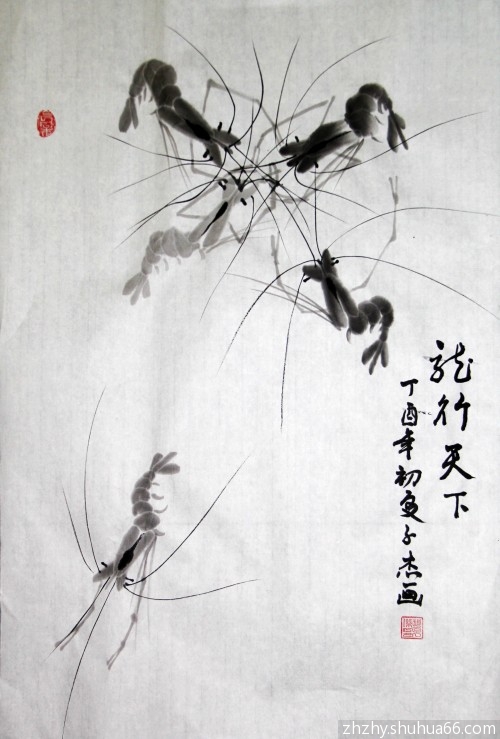 龙行天下
丁酉年初夏子杰画
zhzhy.shuhua66.com